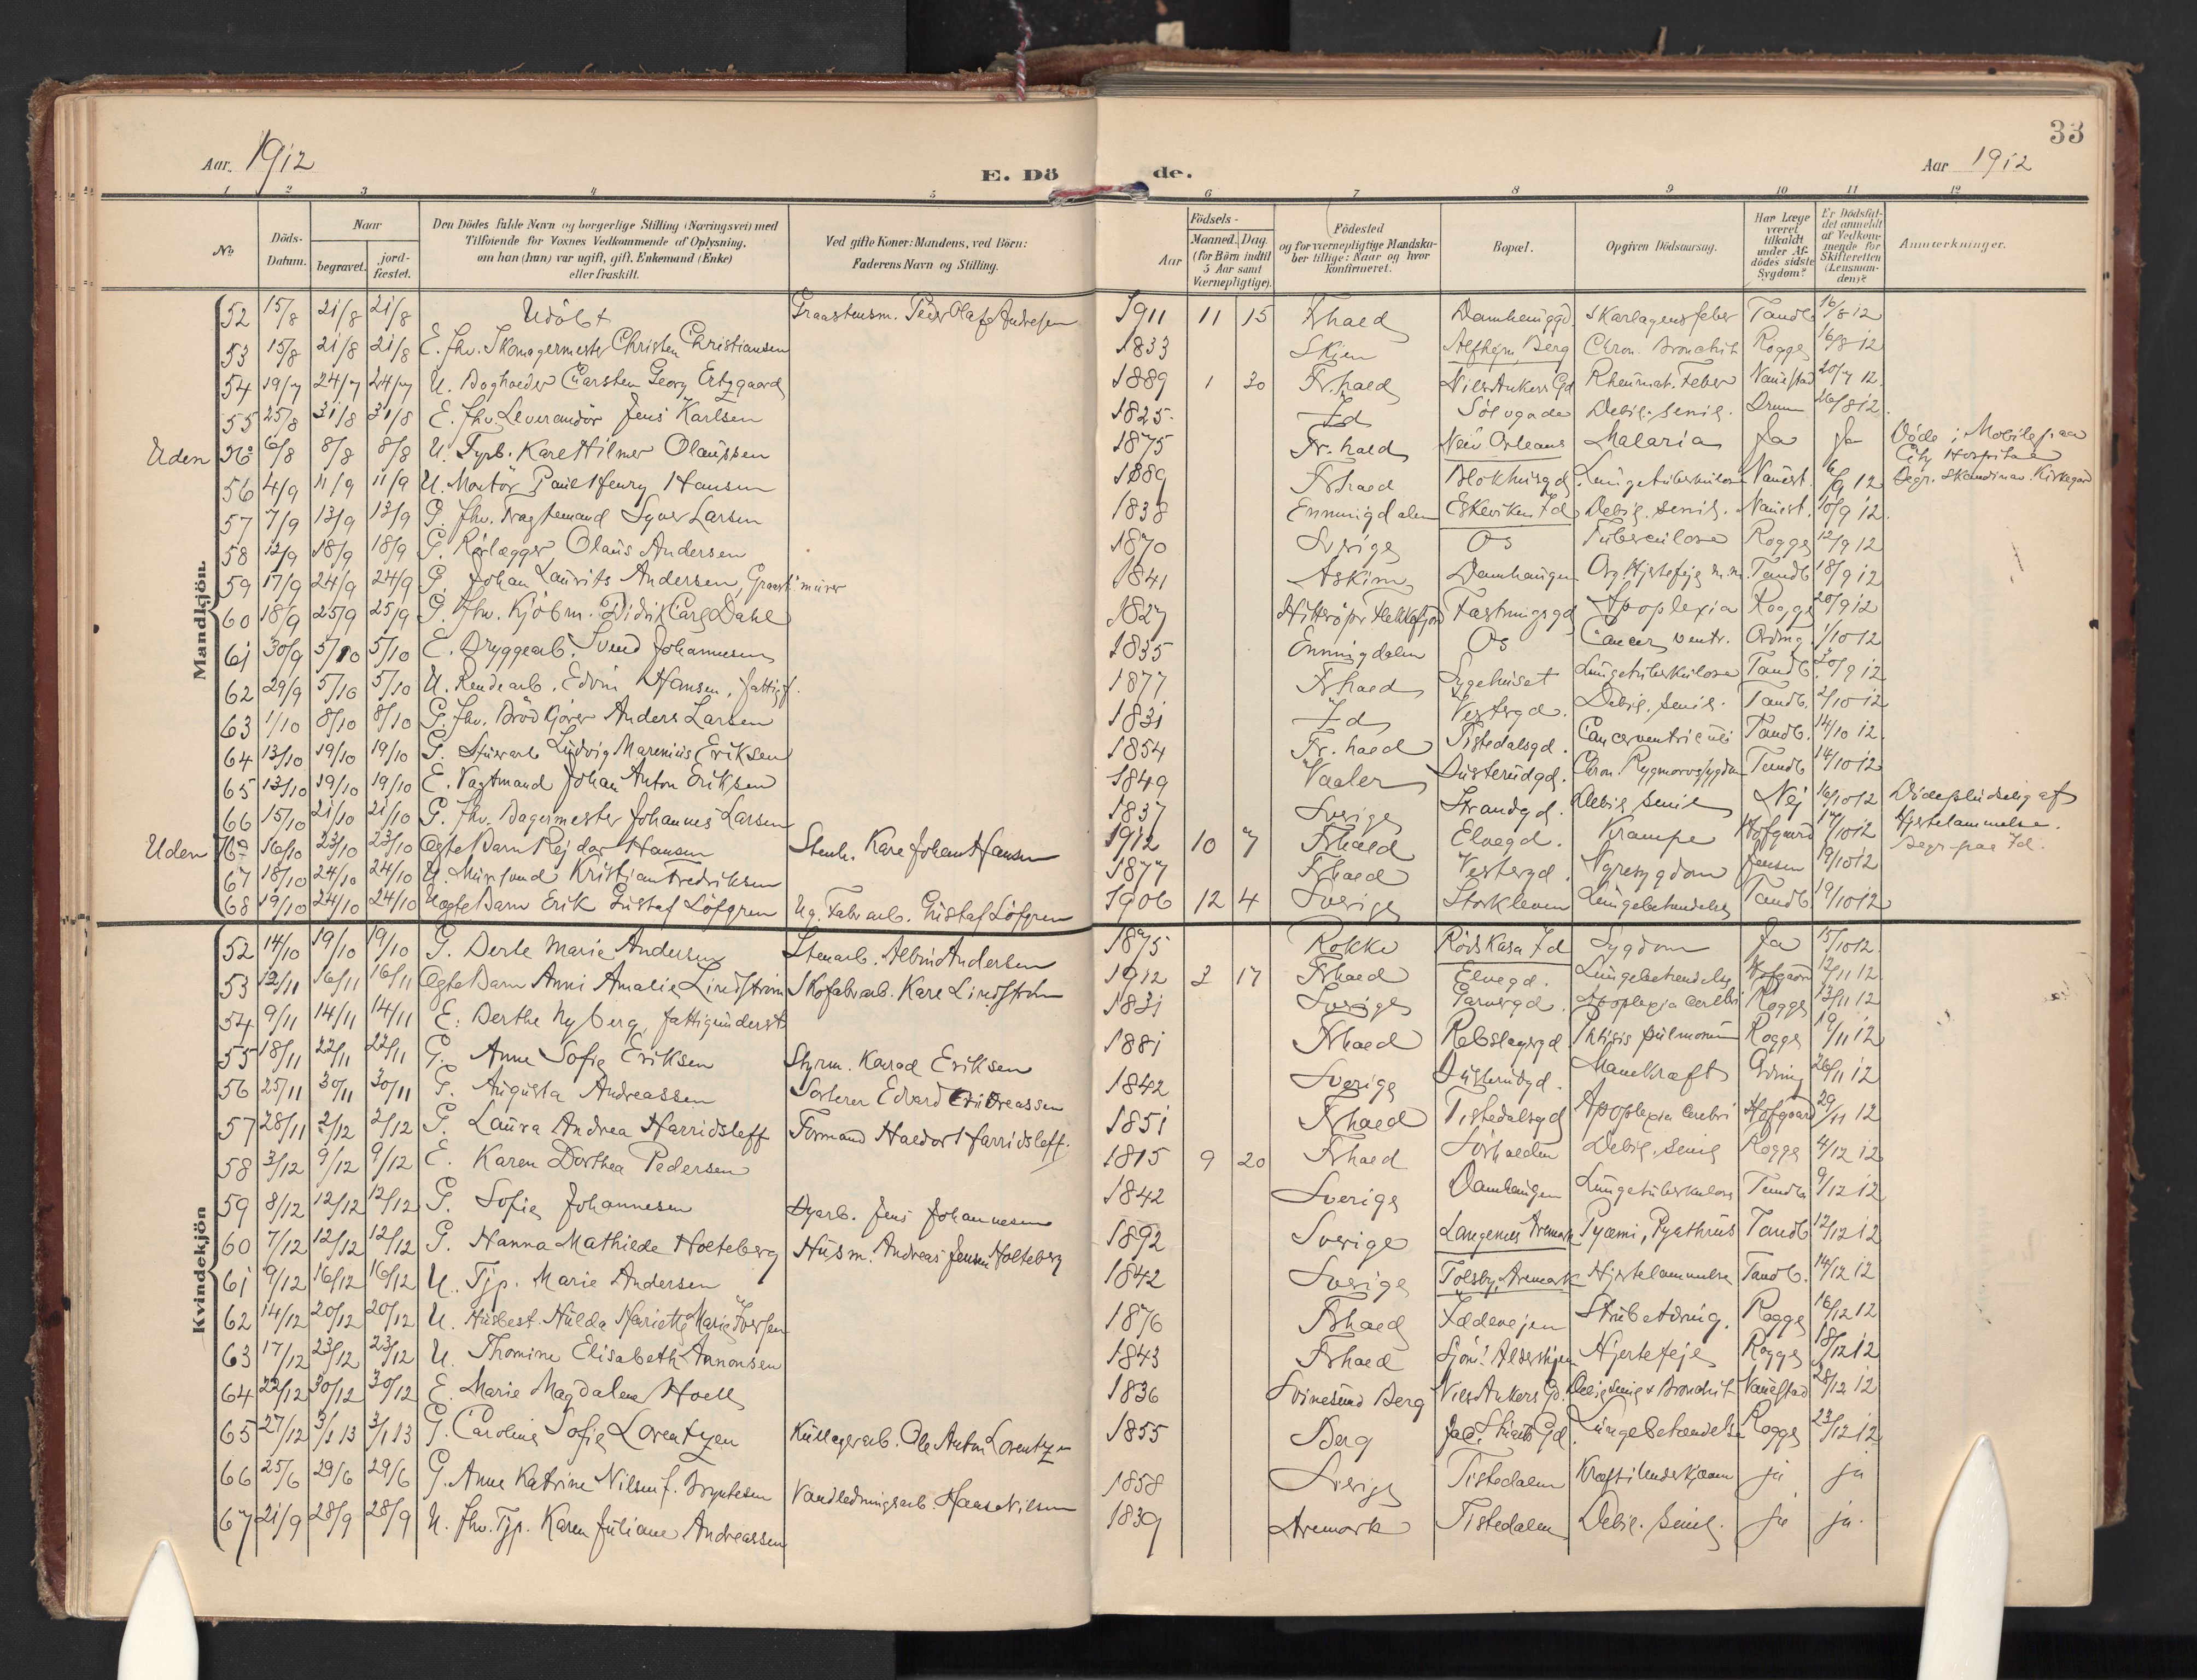 33
Aar 1912
E. Dö
de.
Aar 1912
1 2 3 4 5 6 7 8 9 10 11 12
No
Döds-Datum.
Naar
begravet.
jord-fæstet.
Den Dödes fulde Navn og borgerlige Stilling (Næringsvei) med
Tilföiende for Voxnes Vedkommende af Oplysning,
om han (hun) var ugift, gift, Enkemand (Enke)
eller fraskilt.
Ved gifte Koner: Mandens, ved Börn:
Faderens Navn og Stilling.
Aar
Födsels-
Maaned. Dag.
(for Börn indtil
5 Aar samt
Værnepligtige).
Födested
og for værnepligtige Mandska-
ber tillige: Naar og hvor
konfirmeret.
Bopæl.
Opgiven Dödsaarsag.
Har Læge
været
tilkaldt
under Af-
dödes sidste
Sygdom?
Er Dödsfal-
det anmeldt
af Vedkom-
mende for
Skifteretten
(Lensman-
den)?
Anmærkninger.
Mandkjön.
52 15/8 21/8 21/8 Udöbt Graastensm. Peder Olaf Andresen 1911 11 15 Frhald Damhauggd. Skarlagensfeber Tandb. 16/8 12
53 15/8 21/8 21/8 E. fhv. Skomagermester Christen Christiansen 1833 Skien Alfheim, Berg Chron. Bronchit Rogge 16/8 12
54 19/7 24/7 24/7 U. Bogholder Carsten Georg Ertzgaard 1889 1 30 Fr.hald Nils Ankers Gd Rheumat. Feber Nauestad 20/7 12.
55 25/8 31/8 31/8 E. fhv. Leverandör Jens Karlsen 1825. Id Sölvgade Debil. senil. Drum 26/8 12.
Uden No 6/8 8/8 8/8 U. Typb. Karl Hilmer Olaussen 1875 Fr.hald New Orleans Malaria Ja Ja Döde i Mobile paa
City Hospital
Begr. Skandinav. Kirkegård
56 4/9 11/9 11/9 U. Montör Paul Henry Hansen 1889 Frhald Blokhusgd. Lungetuberkulose Nauest. 6/9 12
57 7/9 13/9 13/9 G. fhv. Fragtemand Syver Larsen 1838 Enningdalen Eskeviken Id Debil. senil. Nauest. 10/9 12.
58 12/9 18/9 18/9 G. Rörlægger Olaus Andersen 1870 Sverige Os Tuberculose Rogge 12/9 12
59 17/9 24/9 24/9 G. Johan Laurits Andersen, Graastmurer 1841 Askim Damhaugen Org. Hjertefejl m.m. Tandb. 18/9 12
60 18/9 25/9 25/9 G. fhv. Kjöbm. Didrik Carl Dahl 1827 Hitterö pr Flekkefjord Fæstningsgd Apoplexia Rogge 20/9 12
61 30/9 5/10 5/10 E. Bryggearb. Svend Johannesen 1835 Enningdalen Os Cancer ventr. Ording 1/10 12
62 29/9 5/10 5/10 U. Rendearb. Edvin Hansen, fattigf. 1877 Frhald Sygehuset Lungetuberkulose Tandb. 30/9 12
63 1/10 8/10 8/10 G. fhv. Brödkjörer Anders Larsen 1831 Id Vestergd. Debil. senil. Tandb. 2/10 12
64 13/10 19/10 19/10 G. Stuerarb Ludvig Marenius Eriksen 1854 Fr.hald Tistedalsgd. Cancer ventriculi Tandb. 14/10 12.
65 13/10 19/10 19/10 E. Vagtmand Johan Anton Eriksen 1849 Vaaler Busterudgd. Chron. Rygmarvssygdom Tandb 14/10 12
66 15/10 21/10 21/10 G. fhv. Bagermester Johannes Larsen 1837 Sverige Strandgd. Debil. senil Nej 16/10 12 Döde pludselig af
Hjertelammelse.
Uden No 16/10 23/10 23/10 Ægte Barn Rejdar Hansen Stenh. Karl Johan Hansen 1912 10 7 Frhald Elvegd. Krampe Hofgaard 17/10 12 Begr. paa Id.
67 18/10 24/10 24/10 U. Mursvend Kristian Fredriksen 1877 Frhald Vestergd. Nyresygdom Jensen 19/10 12
68 19/10 24/10 24/10 Uægte Barn Erik Gustaf Löfgren Ug. Fabrarb. Gustaf Löfgren 1906 12 4 Sverige Storkleven Lungebetændelse Tandb 19/10 12
Kvindekjön
52 14/10 19/10 19/10 G. Berte Marie Andersen Stenarb. Albin Andersen 1875 Rokke Röds Kasa Id Sygdom Ja 15/10 12.
53 12/11 16/11 16/11 Ægte Barn Anni Amalie Lindström Skofabrarb. Karl Lindström 1912 3 17 Frhald Elvegd. Lungebetændelse Hofgaard 12/11 12
54 9/11 14/11 14/11 E. Berthe Nyberg, fattigunderst. 1831 Sverige Garvergd. Apoplexia cerebri Rogge 13/11 12
55 18/11 22/11 22/11 G. Anne Sofie Eriksen Styrm. Konrad Eriksen 1881 Frhald Rebslagergd Phtisis pulmonum Rogge 19/11 12
56 25/11 30/11 30/11 G. Augusta Andreassen Sorterer Edvard Andreassen 1842 Sverige Busterudgd. Manekraft Ording 26/11 12
57 28/11 2/12 2/12 G. Laura Andrea Harridsleff Formand Haldor Harridsleff. 1851 Frhald Tistedalsgd Apoplexia cerebri Hofgaard 29/11 12
58 3/12 9/12 9/12 E. Karen Dorthea Pedersen 1815 9 20 Frhald Sörhalden Debil. senil Rogge 4/12 12
59 8/12 12/12 12/12 G. Sofie Johannesen Byarb. Jens Johannesen 1842 Sverige Damhaugen Lungetuberkulose Tandb. 9/12 12
60 7/12 12/12 12/12 G. Hanna Mathilde Holteberg Husm. Andreas Jensen Holteberg 1892 Sverige Langenes Aremark Pyæmi, Pyathrus Tandb 12/12 12
61 9/12 16/12 16/12 U. Tjp. Marie Andersen 1842 Sverige Tolsby, Aremark Hjertelammelse Tandb. 14/12 12
62 14/12 20/12 20/12 U. Husbest. Hulda Hariette Marie Iversen 1876 Frhald Iddevejen Strubetæring. Rogge 16/12 12
63 17/12 23/12 23/12 U. Thomine Elisabeth Annonsen 1843 Frhald Sjöm. Aldershjem Hjertefejl Rogge 18/12 12
64 22/12 30/12 30/12 E. Marie Magdalene Holt 1836 Svinesund Berg Nils Ankers Gd. Debil. senil & Bronchit Nauestad 28/12 12
65 27/12 3/1 13 3/1 13 G. Caroline Sofie Lorentzen Kullagerarb. Ole Anton Lorentzen 1855 Berg Jac. Gd. Lungebetændelse Rogge 23/12 12
66 25/6 29/6 29/6 G. Anne Katrine Nilsen f. Bryntesen Vandledningsarb. Hans Nilsen 1858 Sverige Tistedalen Kræft i Underkjæven ja ja
67 21/9 28/9 28/9 U. fhv. Tjp. Karen Juliane Andreassen 1839 Aremark Tistedalen Debil. senil. ja ja.